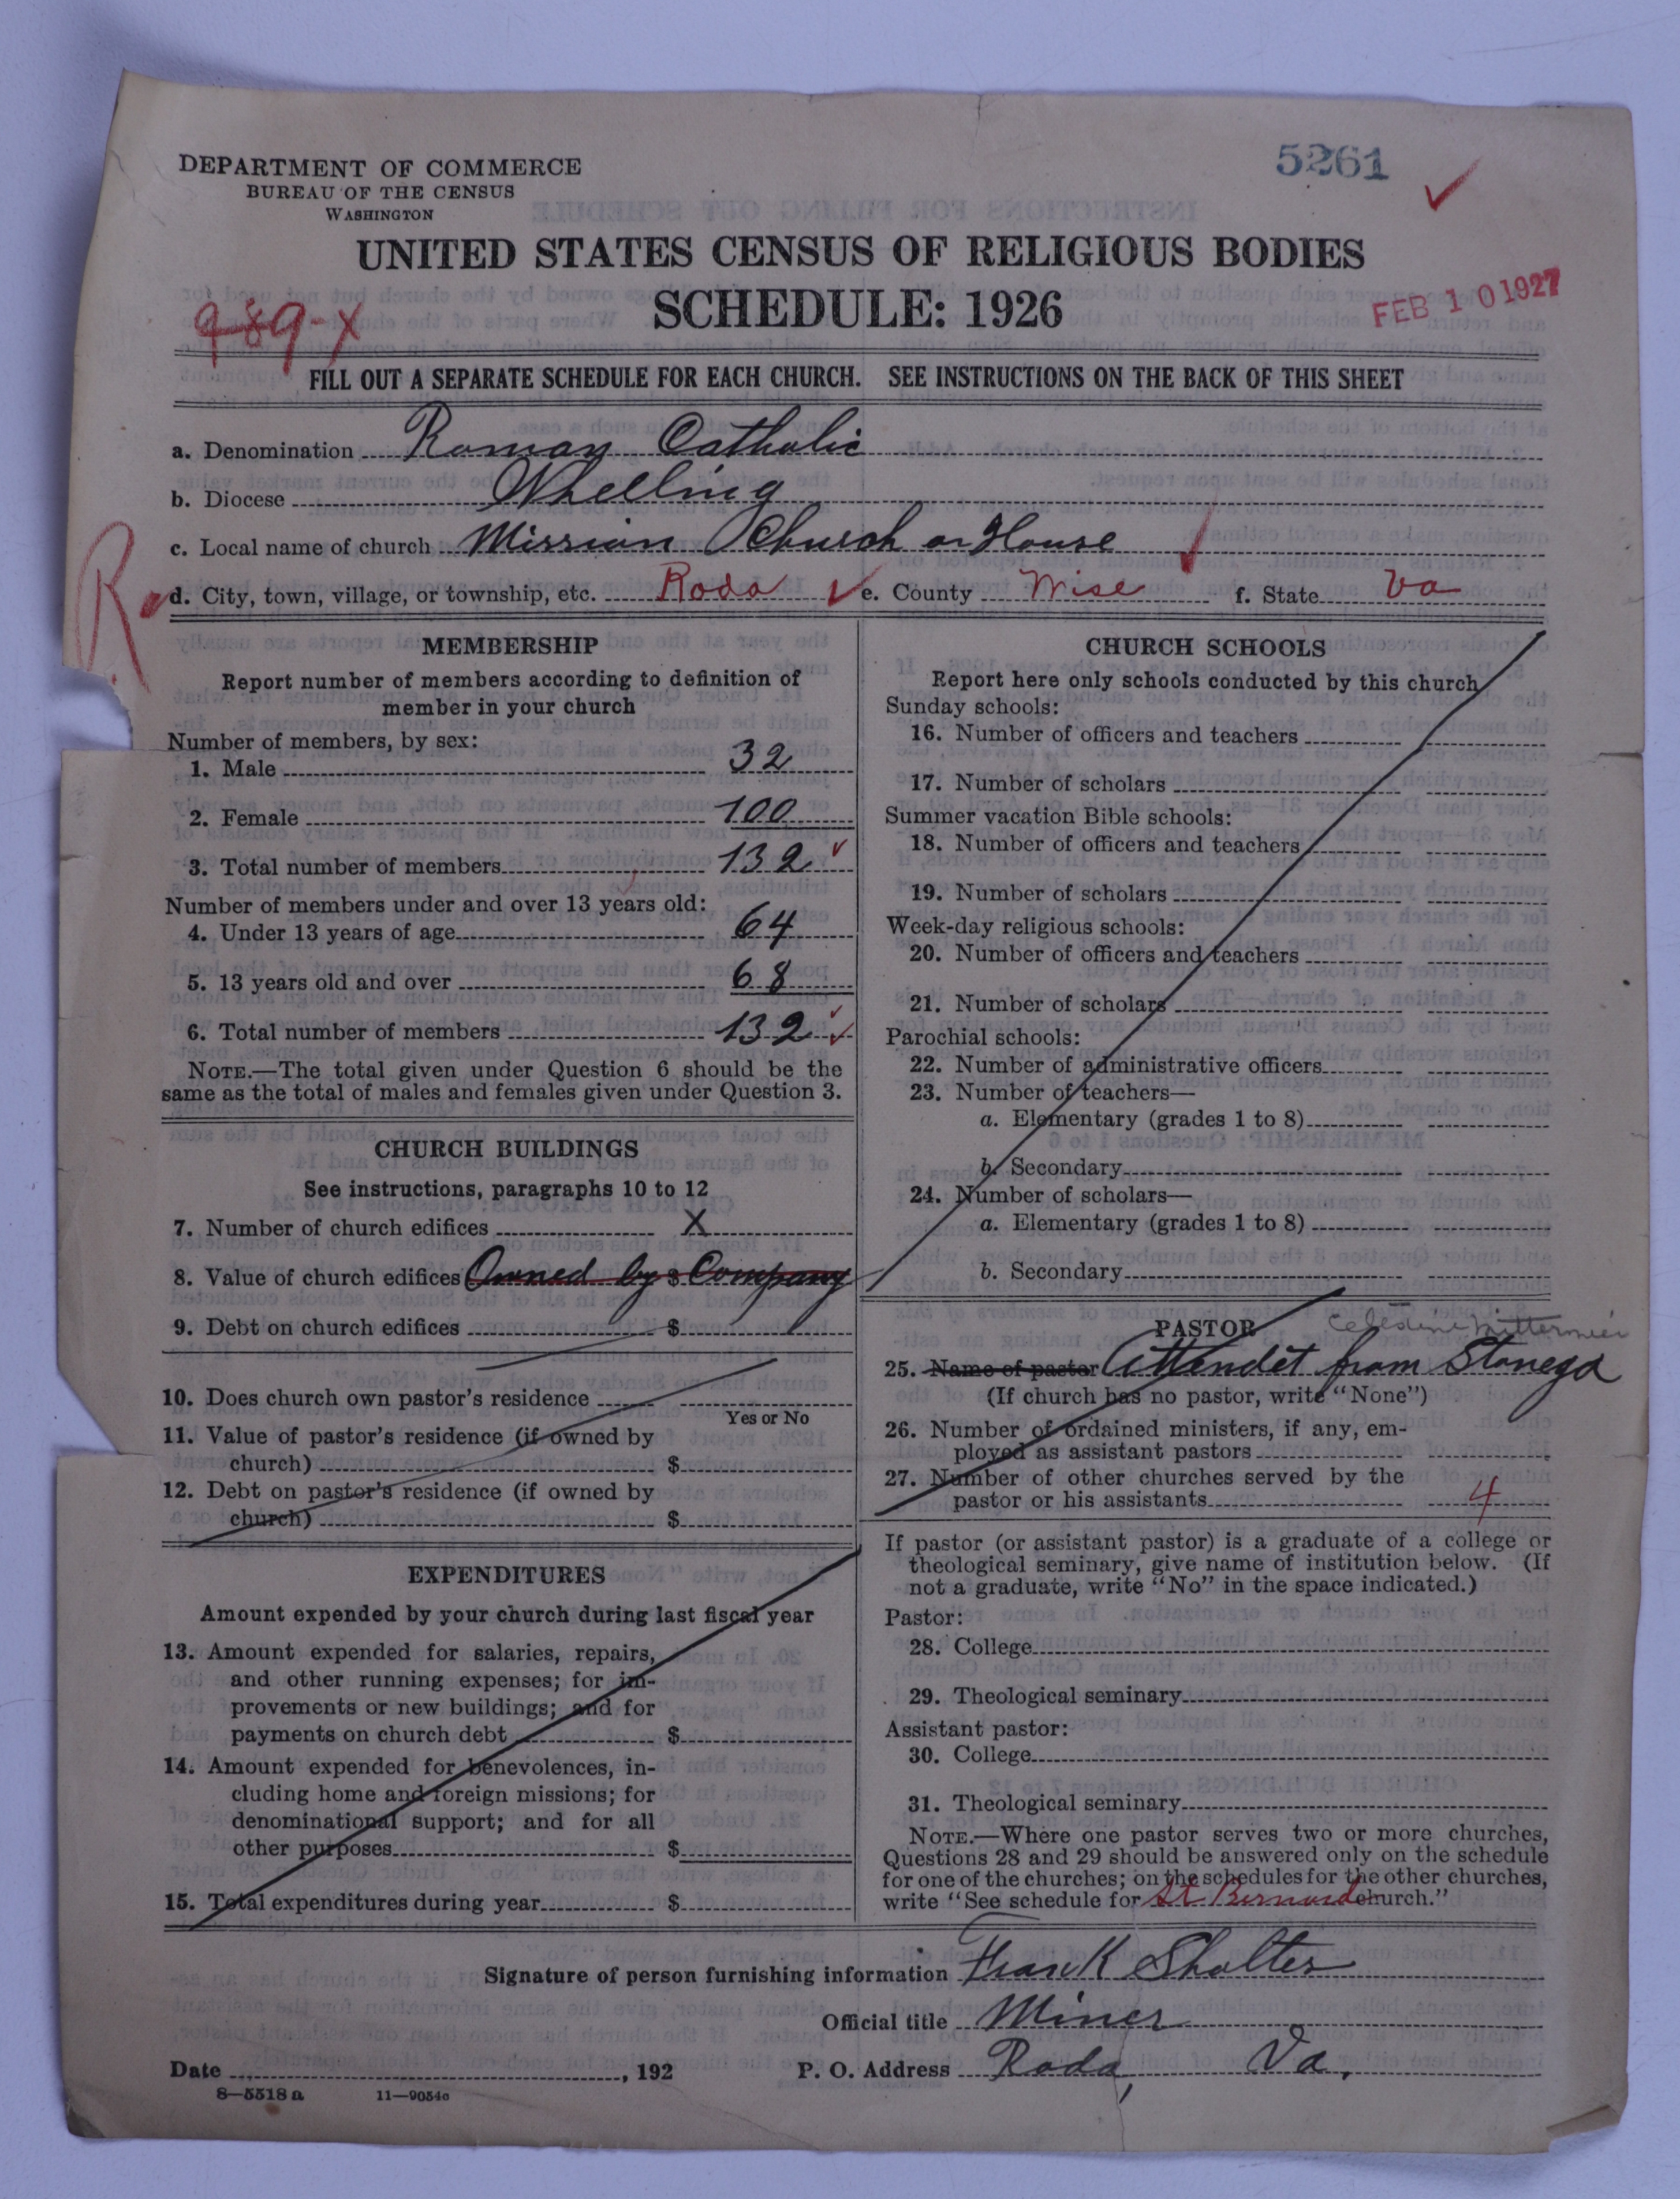 5261
DEPARTMENT OF COMMERCE
BUREAU OF THE CENSUS
WASHINGTON
UNITED STATES CENSUS OF RELIGIOUS BODIES
SCHEDULE: 1926
FEB 10 1927
989-X
FILL OUT A SEPARATE SCHEDULE FOR EACH CHURCH. SEE INSTRUCTIONS ON THE BACK OF THIS SHEET
a. Denomination Roman Catholic
b. Diocese Whelling
c. Local name of church Mission Church or House
R
d. City, town, village, or township, etc. Roda e. County Wise f. State Va
MEMBERSHIP
Report number of members according to definition of
member in your church
Number of members, by sex:
1. Male 32
2. Female 100
3. Total number of members 132
Number of members under and over 13 years old:
4. Under 13 years of age 64
5. 13 years old and over 68
6. Total number of members 132
NOTE.—The total given under Question 6 should be the
same as the total of males and females given under Question 3.
CHURCH BUILDINGS
See instructions, paragraphs 10 to 12
7. Number of church edifices X
8. Value of church edifices $ Owned by Company
9. Debt on church edifices $
10. Does church own pastor's residence
Yes or No
11. Value of pastor's residence (if owned by
church) $
12. Debt on pastor's residence (if owned by
church) $
EXPENDITURES
Amount expended by your church during last fiscal year
13. Amount expended for salaries, repairs,
and other running expenses; for im-
provements or new buildings; and for
payments on church debt $
14. Amount expended for benevolences, in-
cluding home and foreign missions; for
denominational support; and for all
other purposes $
15. Total expenditures during year $
CHURCH SCHOOLS
Report here only schools conducted by this church
Sunday schools:
16. Number of officers and teachers
17. Number of scholars
Summer vacation Bible schools:
18. Number of officers and teachers
19. Number of scholars
Week-day religious schools:
20. Number of officers and teachers
21. Number of scholars
Parochial schools:
22. Number of administrative officers
23. Number of teachers—
a. Elementary (grades 1 to 8)
b. Secondary
24. Number of scholars—
a. Elementary (grades 1 to 8)
b. Secondary
PASTOR Celestine Mittermeier
25. Name of pastor Attendet from Stonega
(If church has no pastor, write "None")
26. Number of ordained ministers, if any, em-
ployed as assistant pastors
27. Number of other churches served by the
pastor or his assistants 4
If pastor (or assistant pastor) is a graduate of a college or
theological seminary, give name of institution below. (If
not a graduate, write "No" in the space indicated.)
Pastor:
28. College
29. Theological seminary
Assistant pastor:
30. College
31. Theological seminary
NOTE.—Where one pastor serves two or more churches,
Questions 28 and 29 should be answered only on the schedule
for one of the churches; on the schedules for the other churches,
write "See schedule for St Bernard church."
Signature of person furnishing information Frank Sholtes
Official title Miner
Date , 192 P. O. Address Roda, Va,
8—5518 a 11—9054c